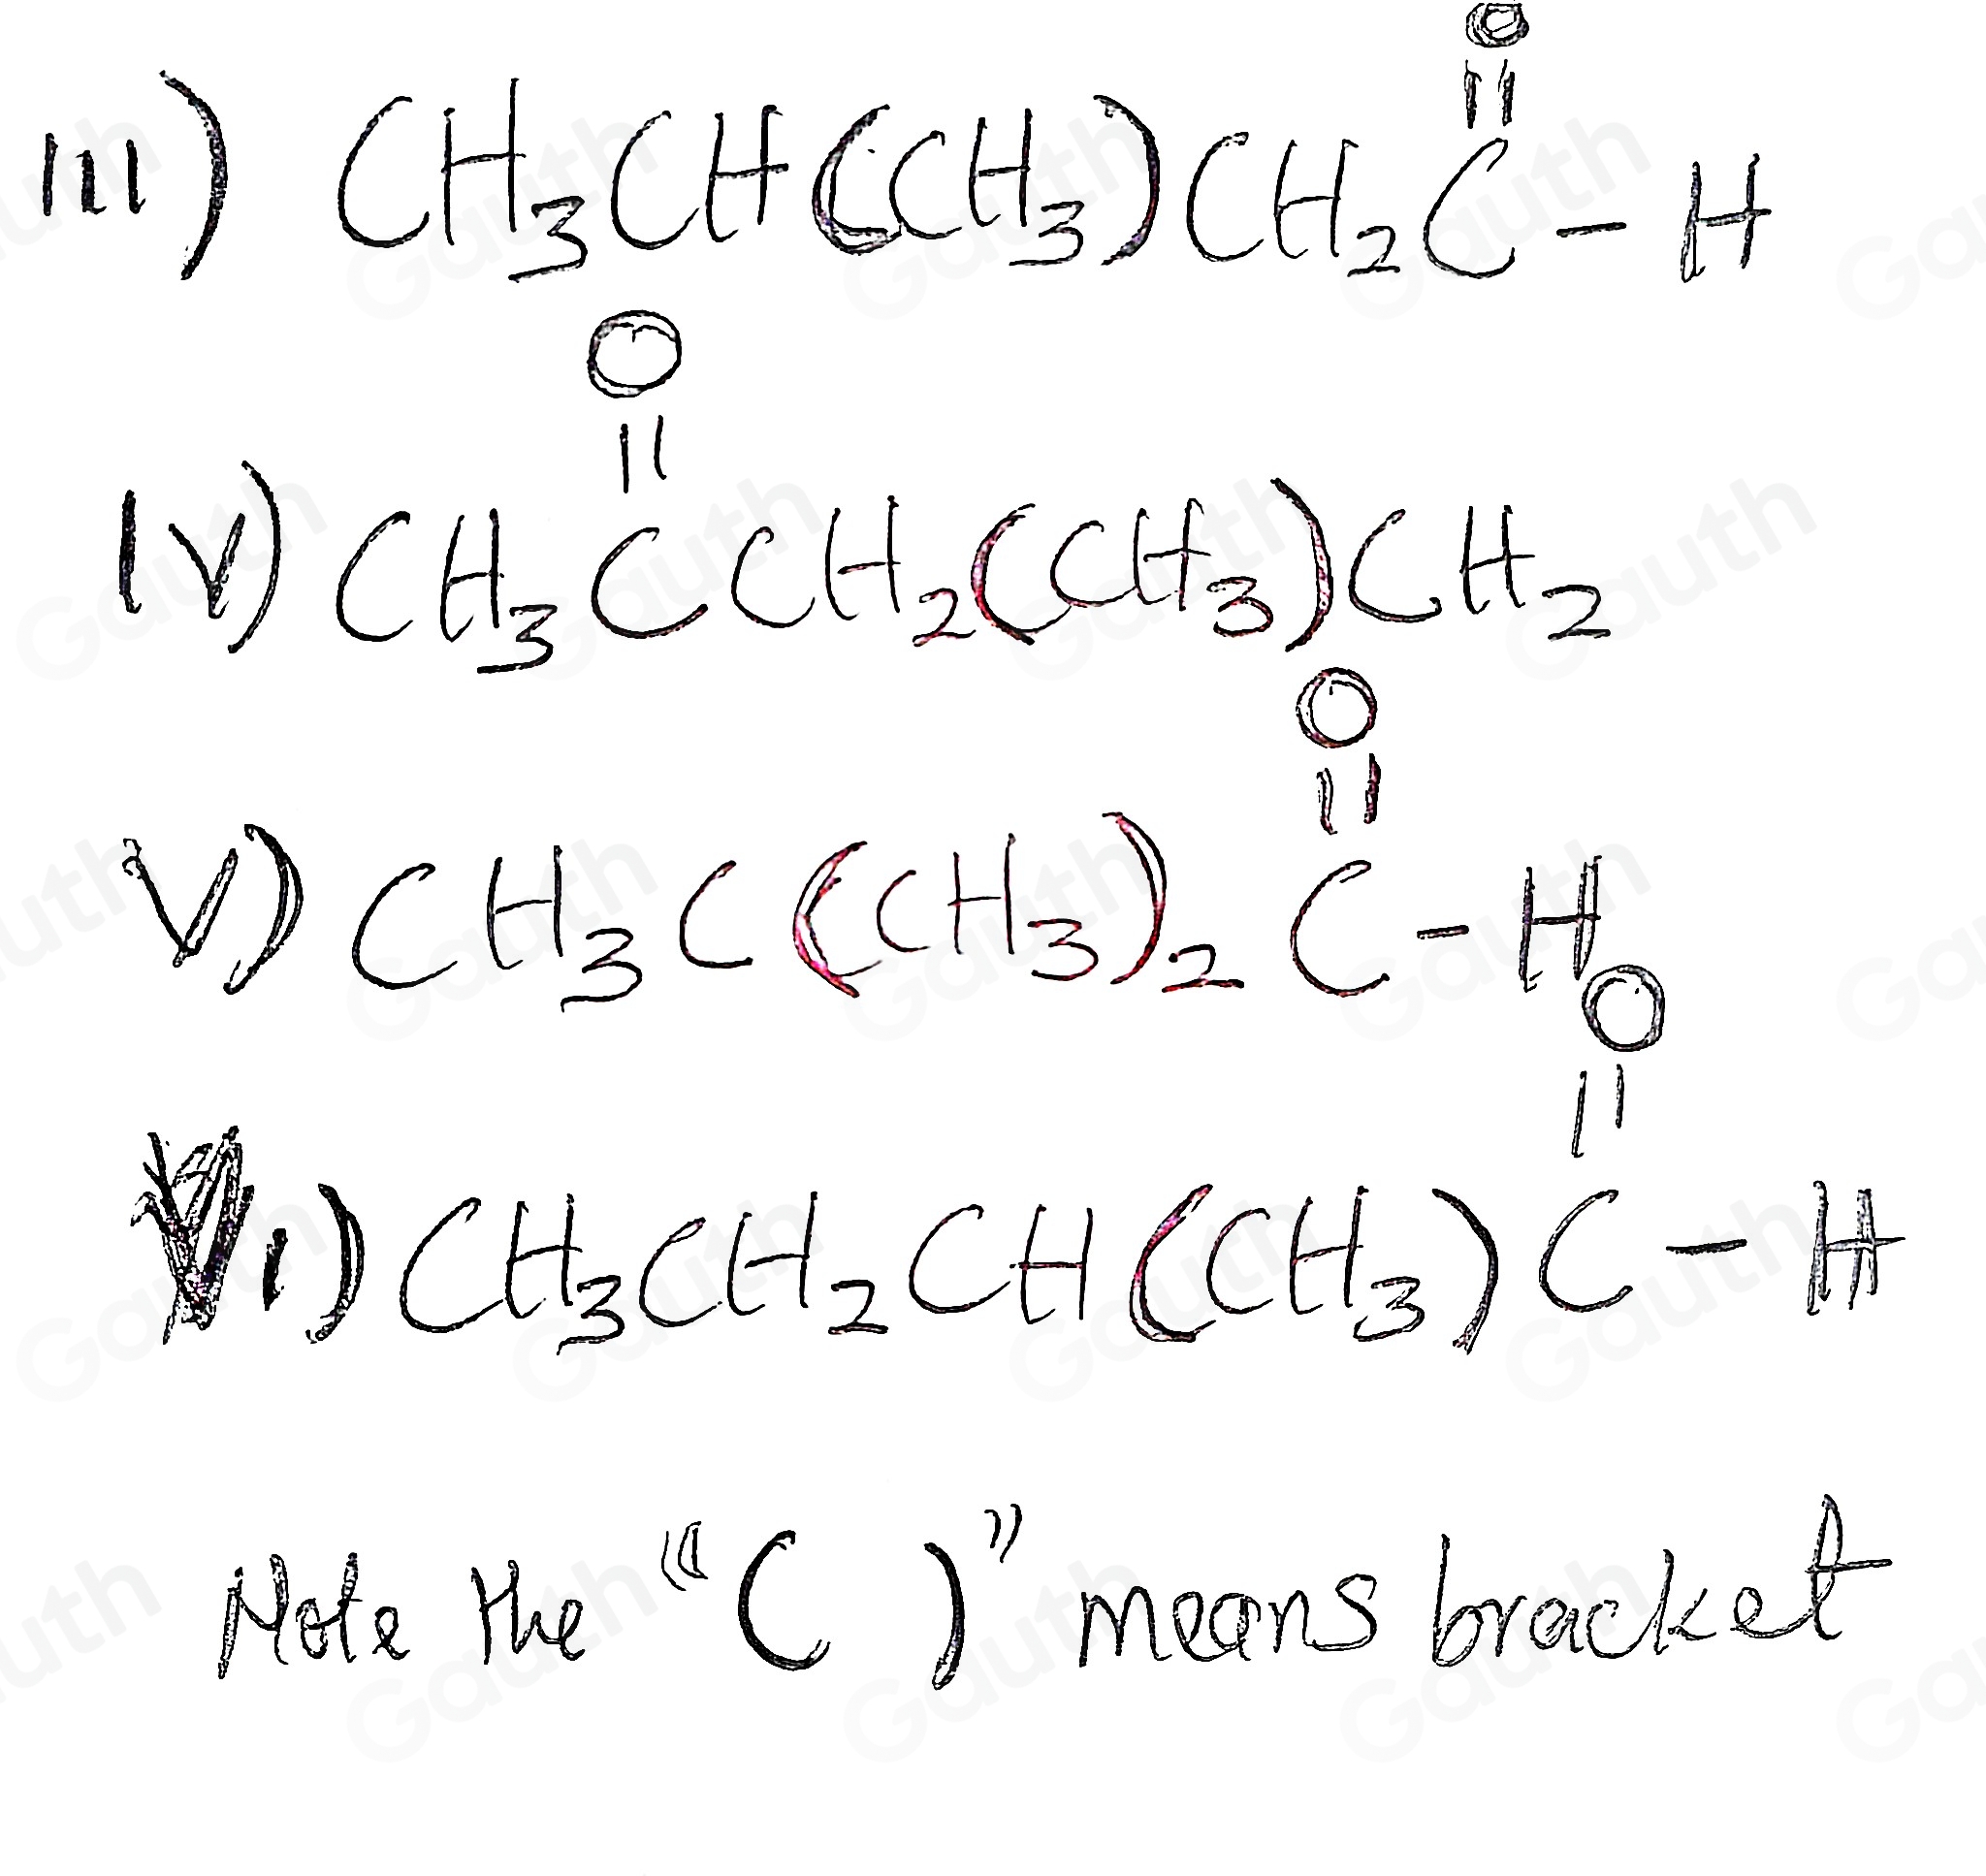 O
||
III) CH₃CH(CH₃)CH₂C-H
O
||
IV) CH₃CCH₂(CH₃)CH₂
O
||
V) CH₃C(CH₃)₂C-H
O
||
VI) CH₃CH₂CH(CH₃)C-H
Note the "( )" means bracket
Gauth